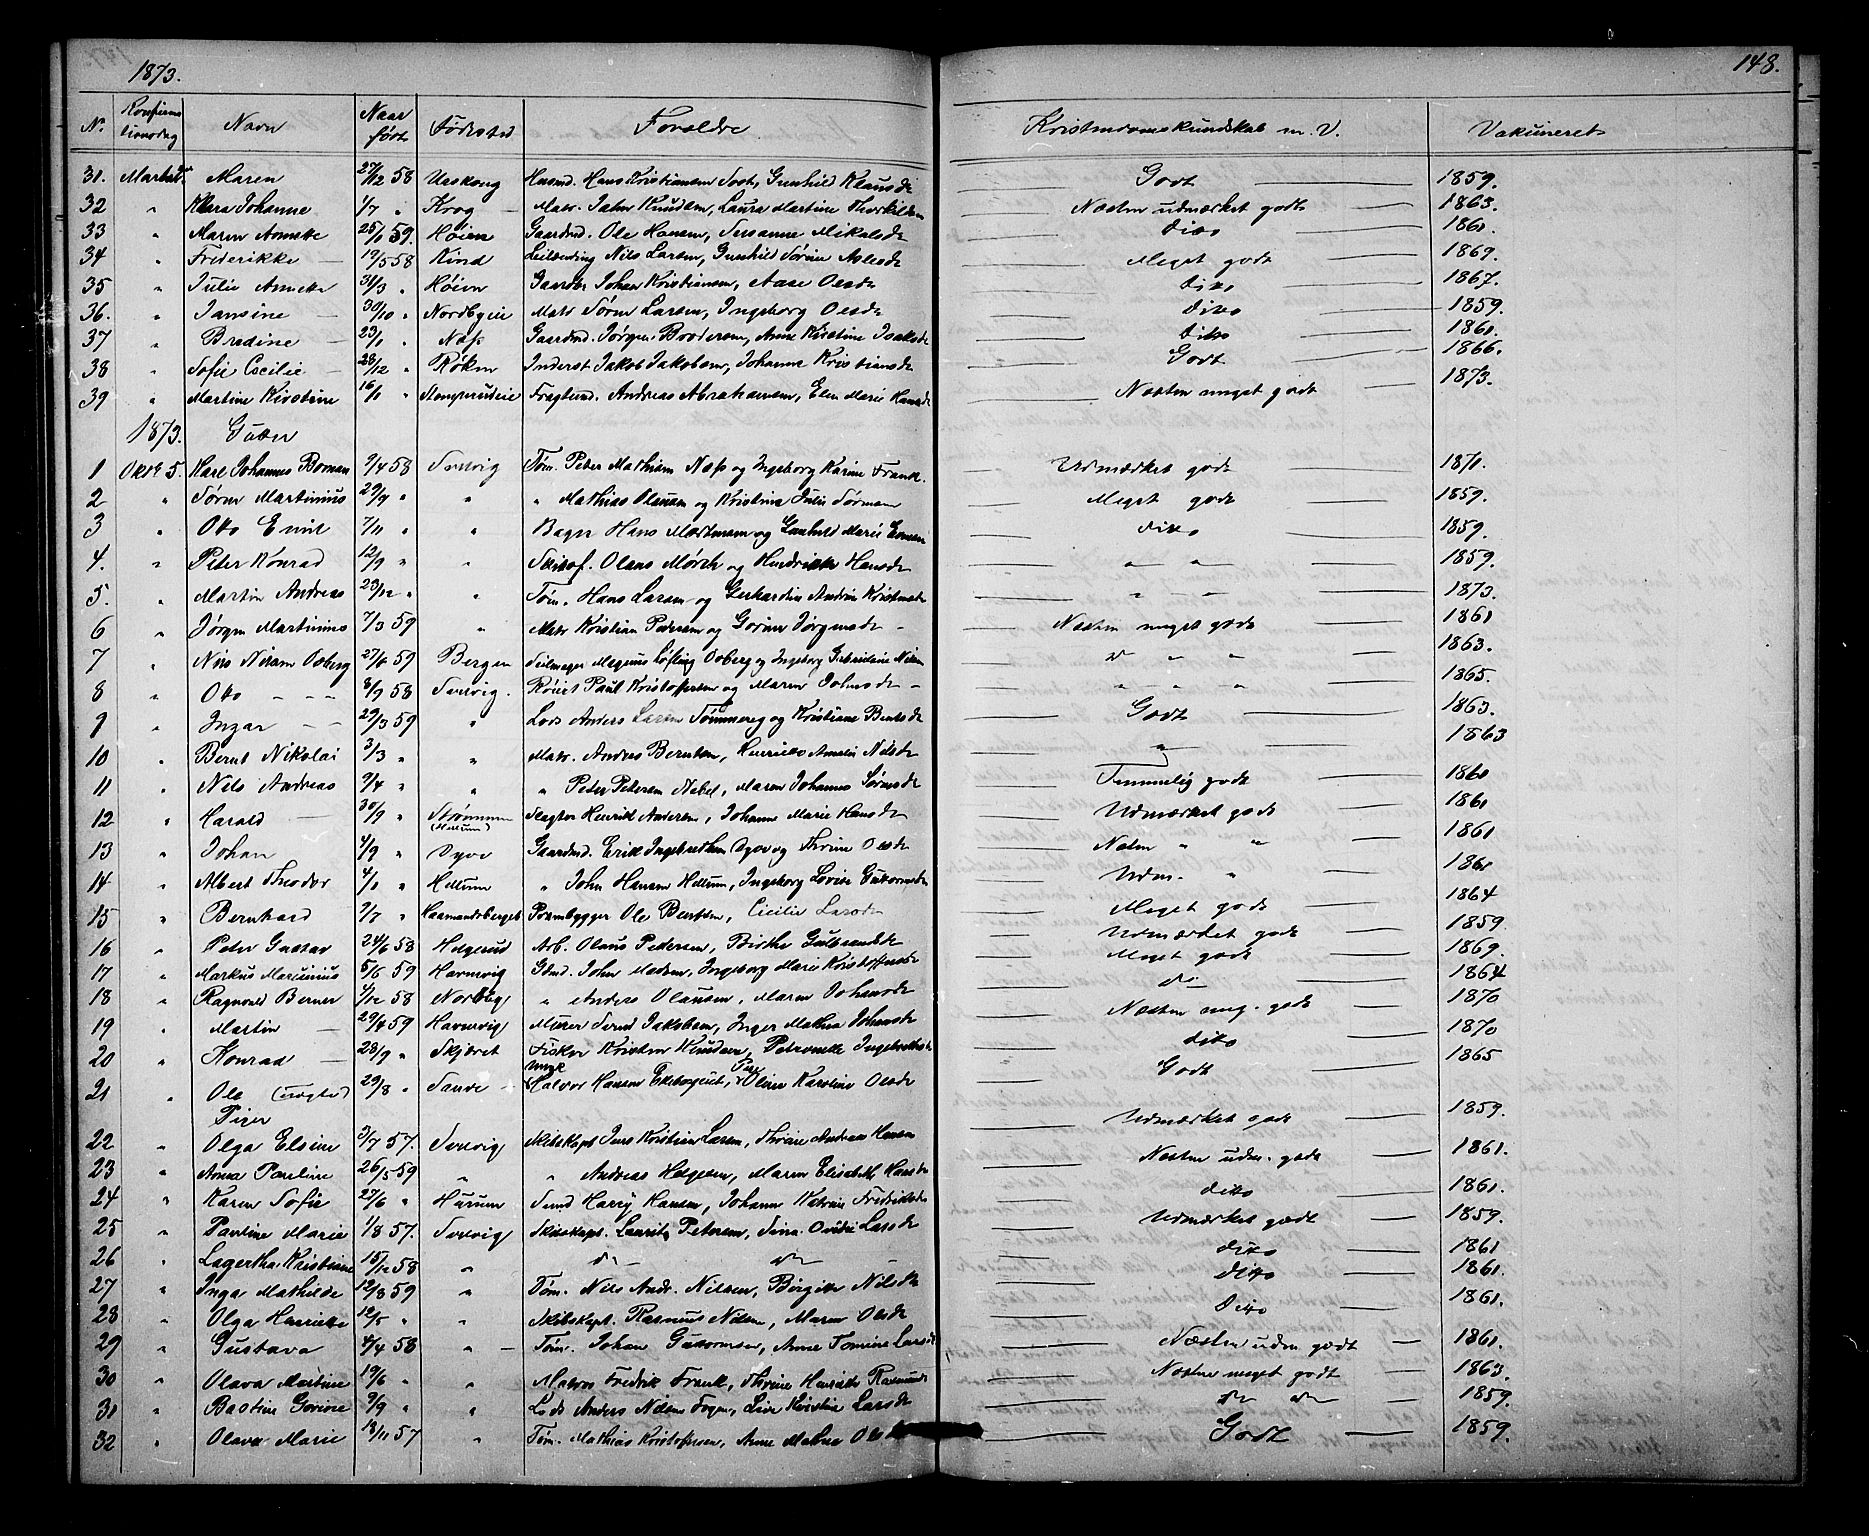 1873.
148.
No. Konfirmationsdag Navn Naar født Fødested Forældre Kristendomskundskab m. V. Vakcineret
31. Maren 27/12 58 Urskoug Husmd. Hans Kristiansen Toot, Gunhild Klausd. Godt 1859.
32 " Klara Johanne 1/7 " Krog Matr. Johan Knudsen, Laura Martine Thorkilds. Næsten udmærket godt 1863.
33 " Maren Annette 25/1 59. Høien Gaardmd. Ole Hansen, Susanne Mikalsd. dito 1860.
34 " Frederikke 19/5 58 Rind Leilænding Nils Larsen, Gunhild Sørine Aslesd. Meget godt 1869.
35 " Julie Annette 31/3 " Høien Gaardbr. Johan Kristiansen, Aase Olsd. dito 1867.
36. " Jansine 30/10 " Nordbyeie Matr. Søren Larsen, Ingeborg Olsd. dito 1859.
37 " Bredine 23/1 " Næss Gaardmd. Jørgen Brodersen, Anne Kirstine Isaksd. dito 1860.
38 " Sofie Cecilie 28/12 " Røken Inderst Jakob Jakobsen, Johanne Kristiansd. Godt 1866.
39 " Martine Kirstine 16/1 " Stomperudeie Fragtmd. Andreas Abrahamsen, Elen Marie Hansd. Næsten meget godt 1873.
1873. Gutter
1 Oktr 5. Karl Johannes Boman 9/4 58 Svelvig Tøm. Peter Mathisen Næss og Ingeborg Karine Frank. Udmærket godt 1871.
2 " Søren Martinius 29/9 " " " Mathias Olausen og Kristine Julie Sørensen Meget godt 1859.
3 " Otto Emil 7/11 " " Bager Hans Mortensen og Gunhild Marie dito 1859.
4. " Peter Konrad 12/9 " " Skibsf. Olaus Mørch og Hendrikke Hansd. " " 1859.
5. " Martin Andreas 23/12 " " Tøm. Hans Larsen og Gerhardine Andrine Kristensd. " " 1873.
6 " Jørgen Martinius 7/3 59 " Matr Kristian Pedersen og Gorine Jørgensd. Næsten meget godt 1861
7 " Nils Nilsen Osberg 27/8 59 Bergen Seilmager Magnus Løfling Osberg og Ingeborg Gabrieline Nilsen " " " 1863.
8 " Otto 8/9 58 Svelvig. Røiert Paul Kristoffersen og Maren Johnsd. " " " 1865.
9 " Ingar 29/3 59 " Lods Anders Larsen Tømmereg og Kristiane Berntsd. Godt 1863.
10 " Bernt Nikolai 3/3 " " Matr. Anders Berntsen, Henriette Amalie Nilsd. " 1863
11 " Nils Andreas 9/4 " " " Peter Petersen Aabel, Maren Johanne Sørensd. Temmelig godt 1860
12 " Harald 30/9 " Strømmen (Hellum) Slagter Henrik Andersen, Johanne Marie Hansd. Udmærket godt 1860
13 " Johan 4/9 " Dyve Gaardmd. Erik Ingebrethsen Dyve og Thrine Olsd. Næsten " " 1861
14 " Albert Theodor 4/1 " Hellum " John Hansen Hellum, Ingeborg Lovise Guttormsd. Udm. " 1860
15 " Bernhard 7/7 " Haamandsberget Prambygger Ole Berntsen, Cicilie Larsd. Meget godt 1864
16 " Peter Gustav 24/6 58 Helgerud Arb. Olaus Pedersen, Birthe Gulbrandsd. Udmærket godt 1859.
17 " Markus Marinius 5/6 59 Havnevig Gdmd. John Madsen, Ingeborg Marie Kristoffersd. Meget godt 1869.
18 " Ragnvald Berner 4/12 58 Nordby " Anders Olausen, Maren Johansd. do 1864
19 " Martin 29/4 59 Havnevig Murer Svend Jakobsen, Inger Mathea Johansd. Næsten meg. godt 1870
20 " Konrad 28/9 " Skjæret Fisker Kristen Knudsen, Petronelle Ingebretsd. dito 1870
21 " Ole 29/8 " Sande Ungk Halvor Hansen Ekeberget, Pige Oline Karoline Olsd. Godt 1865
Piger
22 " Olga Elsine 3/7 57. Svelvig Skibskapt Jens Kristian Larsen, Thrine Andrea Hansen Udmærket godt 1859.
23 " Anna Pauline 26/5 59 " " Andreas Helgesen, Maren Elisabeth Hansd. Næsten udm. godt 1861.
24 " Karen Sofie 27/6 " Hurum Svend Harry Hansen, Johanne Katrine Fredriksd. dito 1861.
25 " Pauline Marie 1/8 57. Svelvig Skibskapt. Laurits Petersen, Sina Ovidie Larsd. Udmærket godt 1859.
26 " Lagertha Kristiane 15/12 58 " do do dito 1861
27 " Inga Mathilde 19/8 59 " Tøm. Nils Andr. Nilsen, Børgitte Nilsd. dito 1861.
28 " Olga Henriette 19/5 " " Skibskapt. Rasmus Nilsen, Maren Olsd. dito 1861.
29 " Gustava 4/4 58 " Tøm. Johan Guttormsen, Anne Tomine Larsd. Næsten udm. godt 1861.
30 " Olava Martine 19/6 " " Matros Fredrik Frank, Thrine Henriette Rasmusd. Næsten meget godt 1863.
31 " Bastine Gorine 9/9 " " Lods Anders Nilsen Fogen, Live Kirstine Larsd. do do 1859.
32 " Olava Marie 13/11 57 " Tøm. Mathias Kristoffersen, Anne Mathea Olsd. Godt 1859.